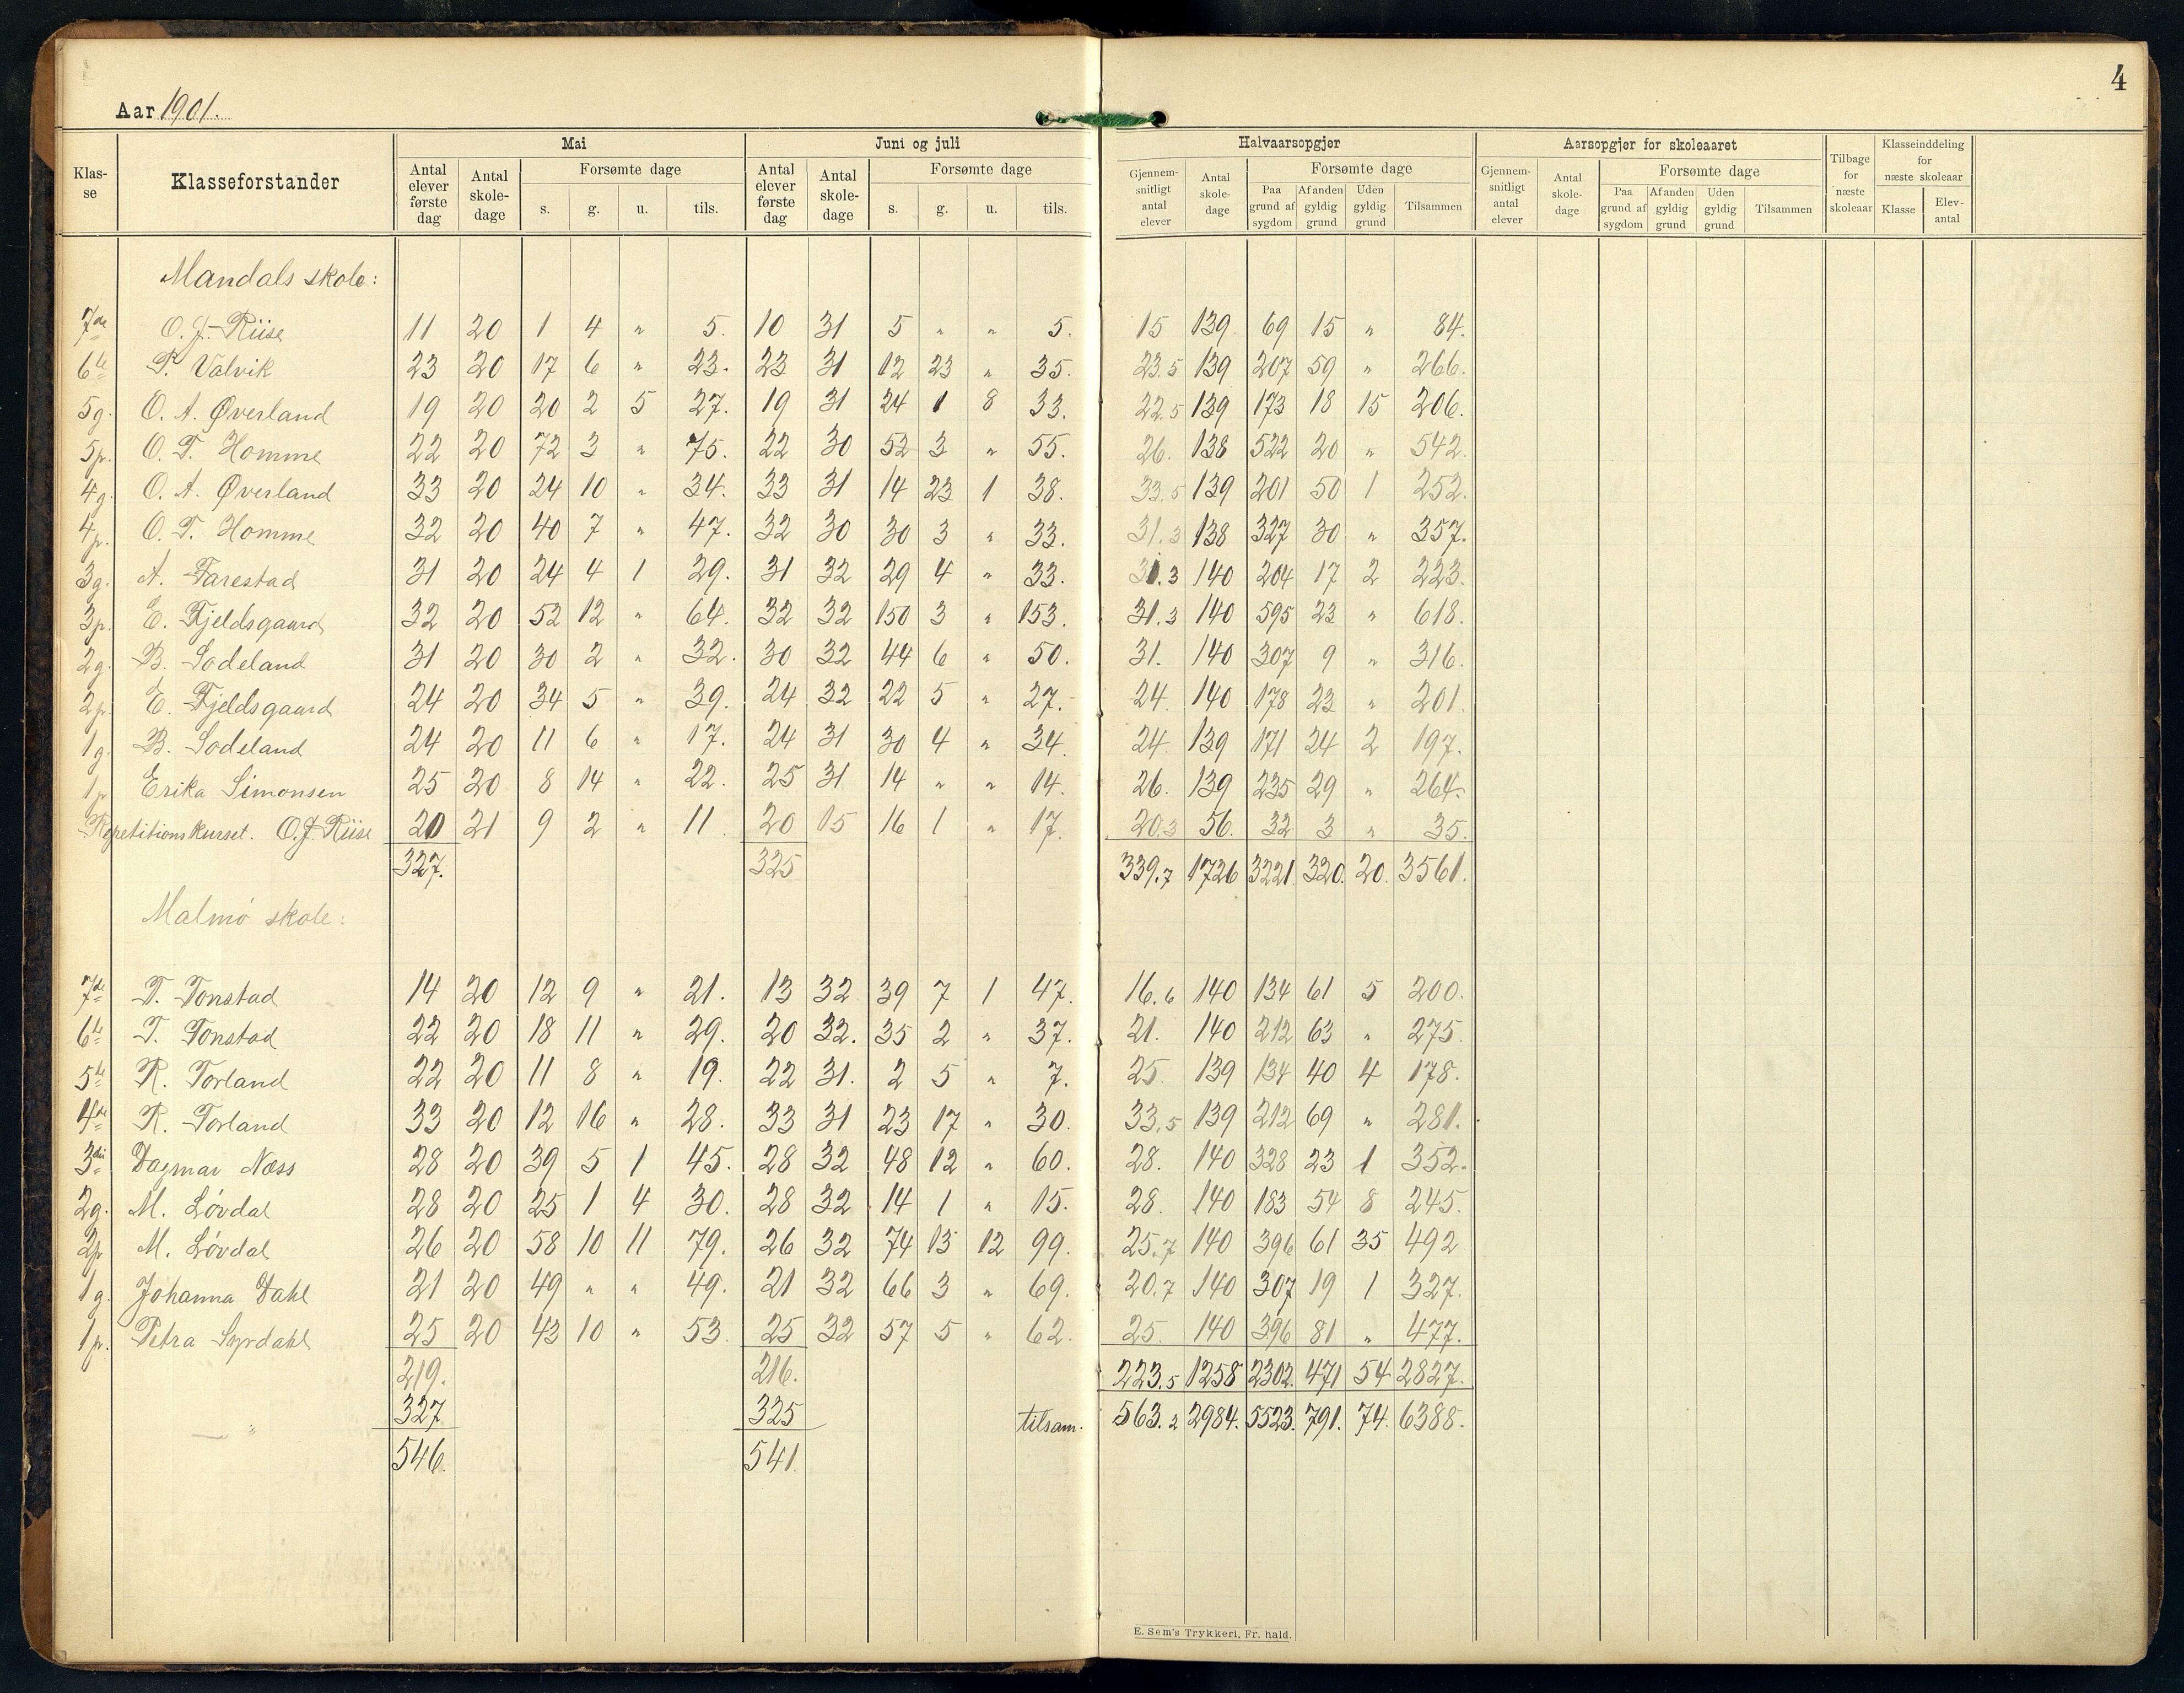 4
Aar 1901.
Klasse | Klasseforstander | Mai | Juni og juli | Halvaarsopgjør | Aarsopgjør for skoleaaret | Tilbage for næste skoleaar | Klasseinddeling for næste skoleaar
Antal elever første dag | Antal skole-dage | Forsømte dage | Antal elever første dag | Antal skole-dage | Forsømte dage | Gjennem-snitligt antal elever | Antal skole-dage | Forsømte dage | Gjennem-snitligt antal elever | Antal skole-dage | Forsømte dage | Klasse | Elev-antal
s. | g. | u. | tils. | s. | g. | u. | tils. | Paa grund af sygdom | Af anden gyldig grund | Uden gyldig grund | Tilsammen | Paa grund af sygdom | Af anden gyldig grund | Uden gyldig grund | Tilsammen
Mandals skole:
7de O. J. Riise 11 20 1 4 " 5. 10 31 5 " " 5. 15 139 69 15 " 84.
6te P. Valvik 23 20 17 6 " 23. 23 31 12 23 " 35. 23.5 139 207 59 " 266.
5g. O. A. Øverland 19 20 20 2 5 27. 19 31 24 1 8 33. 22.5 139 173 18 15 206.
5p. O. T. Homme 22 20 72 3 " 75. 22 30 52 3 " 55. 26. 138 522 20 " 542.
4g. O. A. Øverland 33 20 24 10 " 34. 33 31 14 23 1 38. 33.5 139 201 50 1 252.
4p. O. T. Homme 32 20 40 7 " 47. 32 30 30 3 " 33. 31.3 138 327 30 " 357.
3g. A. Tarestad 31 20 24 4 1 29. 31 32 29 4 " 33. 31.3 140 204 17 2 223.
3p. E. Fjeldsgaard 32 20 52 12 " 64. 32 32 150 3 " 153. 31.3 140 595 23 " 618.
2g. B. Lodeland 31 20 30 2 " 32. 30 32 44 6 " 50. 31. 140 307 9 " 316.
2p. E. Fjeldsgaard 24 20 34 5 " 39. 24 32 22 5 " 27. 24. 140 178 23 " 201.
1g. B. Lodeland 24 20 11 6 " 17. 24 31 30 4 " 34. 24. 139 171 24 2 197.
1p Erika Simonsen 25 20 8 14 " 22. 25 31 14 " " 14. 26. 139 235 29 " 264.
Repetitionskurset. O.J. Riise 20 21 9 2 " 11. 20 15 16 1 " 17. 20.3 56. 32 3 " 35.
327. 325 339.7 1726 3221. 320. 20. 3561.
Malmø skole:
7de T. Tonstad 14 20 12 9 " 21. 13 32 39 7 1 47. 16.6 140 134 61 5 200.
6te T. Tonstad 22 20 18 11 " 29. 20 32. 35 2 " 37. 21. 140 212 63 " 275.
5te R. Torland 22 20 11 8 " 19. 22 31. 2 5 " 7. 25. 139 134 40 4 178.
4de R. Torland 33 20 12 16 " 28. 33 31 23 17 " 30. 33.5 139 212 69 " 281.
3die Dagmar Næss 28 20 39 5 1 45. 28 32 48 12 " 60. 28. 140 328 23 1 352.
2g. M. Løvdal 28 20 25 1 4 30. 28 32 14 1 " 15. 28. 140 183 54 8 245.
2p M. Løvdal 26 20 58 10 11 79. 26 32 74 13 12 99. 25.7 140 396 61 35 492
1g. Johanna Dahl 21 20 49 " " 49. 21 32 66 3 " 69. 20.7 140 307 19 1 327.
1p. Petra Syrdahl 25 20 43 10 " 53 25 32 57 5 " 62. 25. 140 396 81 " 477.
219. 216. 223.5 1258 2302. 471 54 2827.
327 325 tilsam. 563.2 2984. 5523. 791. 74. 6388.
546. 541.
E. Sem's Trykkeri, Fr. hald.